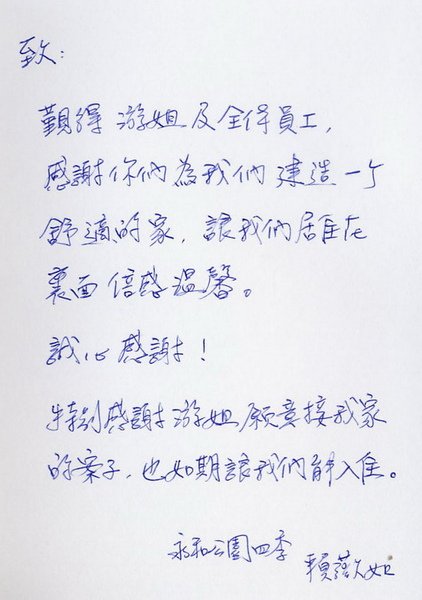 致：
觀得 游姐 及全体員工，
感謝你們為我們 建造 一个
舒適的家，讓我們居住在
裏面 倍感溫馨。
誠心感謝！
特別感謝游姐願意接我家
的案子，也如期讓我們能入住。
永和公園四季
賴